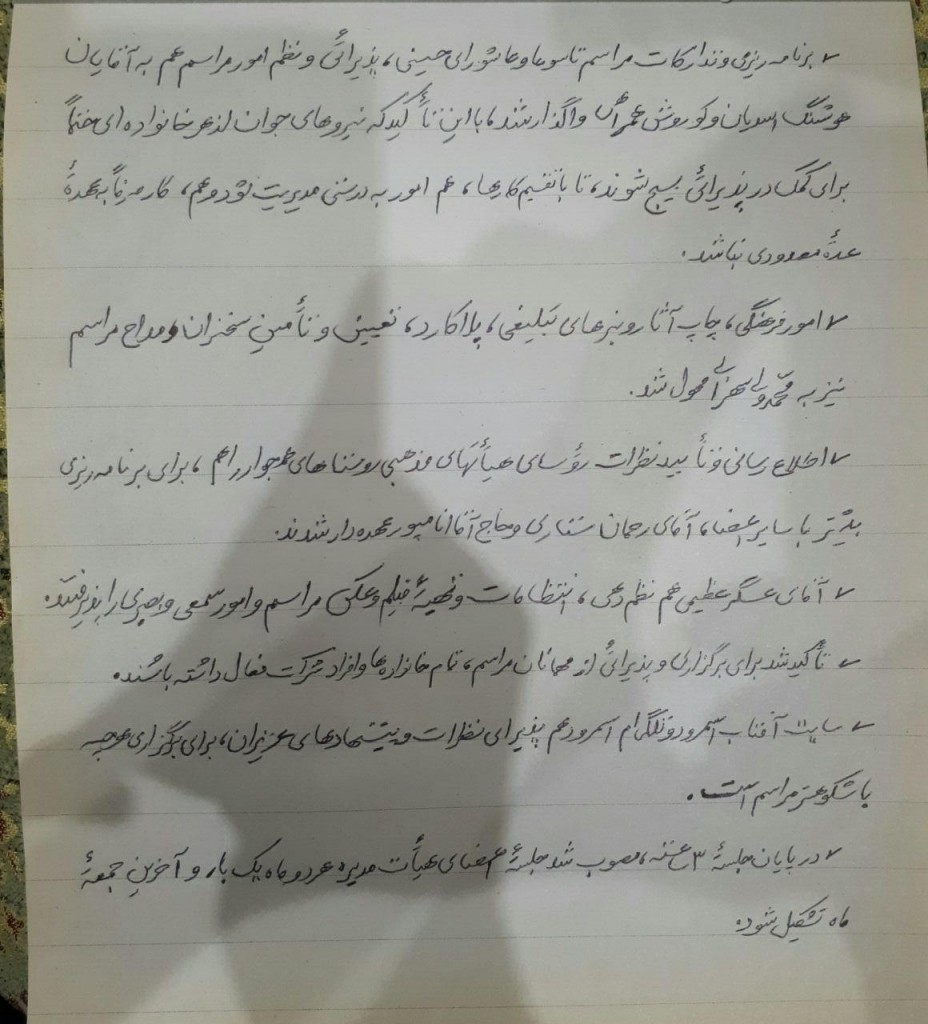 ✓ برنامه ریزی و تدارکات مراسم تاسوعا و عاشورای حسینی، پذیرائی و نظم امور مراسم هم به آقایان
هوشنگ و کوروش واگذار شد، با این تأکید که نیروهای جوان از هر خانواده ای حتماً
برای کمک در پذیرائی بسیج شوند، تا با تقسیم کارها، هم امور به درستی مدیریت شود و هم، کار صرفاً به عهدۀ
عدۀ معدودی نباشد.
✓ امور فرهنگی، چاپ آثار و بنرهای تبلیغی، پلاکارد، تعیین و تأمین سخنران و مداح مراسم
نیز به محول شد.
✓ اطلاع رسانی و تأیید نظرات رؤسای هیأتهای مذهبی روستاهای همجوار را هم، برای برنامه ریزی
بهتر با سایر اعضا، آقای رحمان ستاری و حاج آقا عهده دار شدند.
✓ آقای عسگر عظیمی هم نظم دهی، انتظامات و تهیۀ فیلم و عکس مراسم و امور سمعی و بصری را پذیرفتند.
✓ تأکید شد برای برگزاری و پذیرائی از مهمانان مراسم، تمام خانواده ها و افراد شرکت فعال داشته باشند.
✓ سایت آفتاب اسمرود و تلگرام اسمرود هم پذیرای نظرات و پیشنهادهای عزیزان، برای برگزاری هرچه
باشکوهتر مراسم است.
✓ در پایان جلسۀ ۳ ع، مصوب شد جلسۀ اعضای هیأت مدیره هر دو ماه یک بار و آخرین جمعۀ
ماه تشکیل شود.